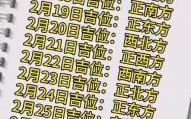 2月19日吉位：正南方
2月20日吉位：正东方
2月21日吉位：西北方
2月22日吉位：正西方
2月23日吉位：西南方
2月24日吉位：正北方
2月25日吉位：正东方